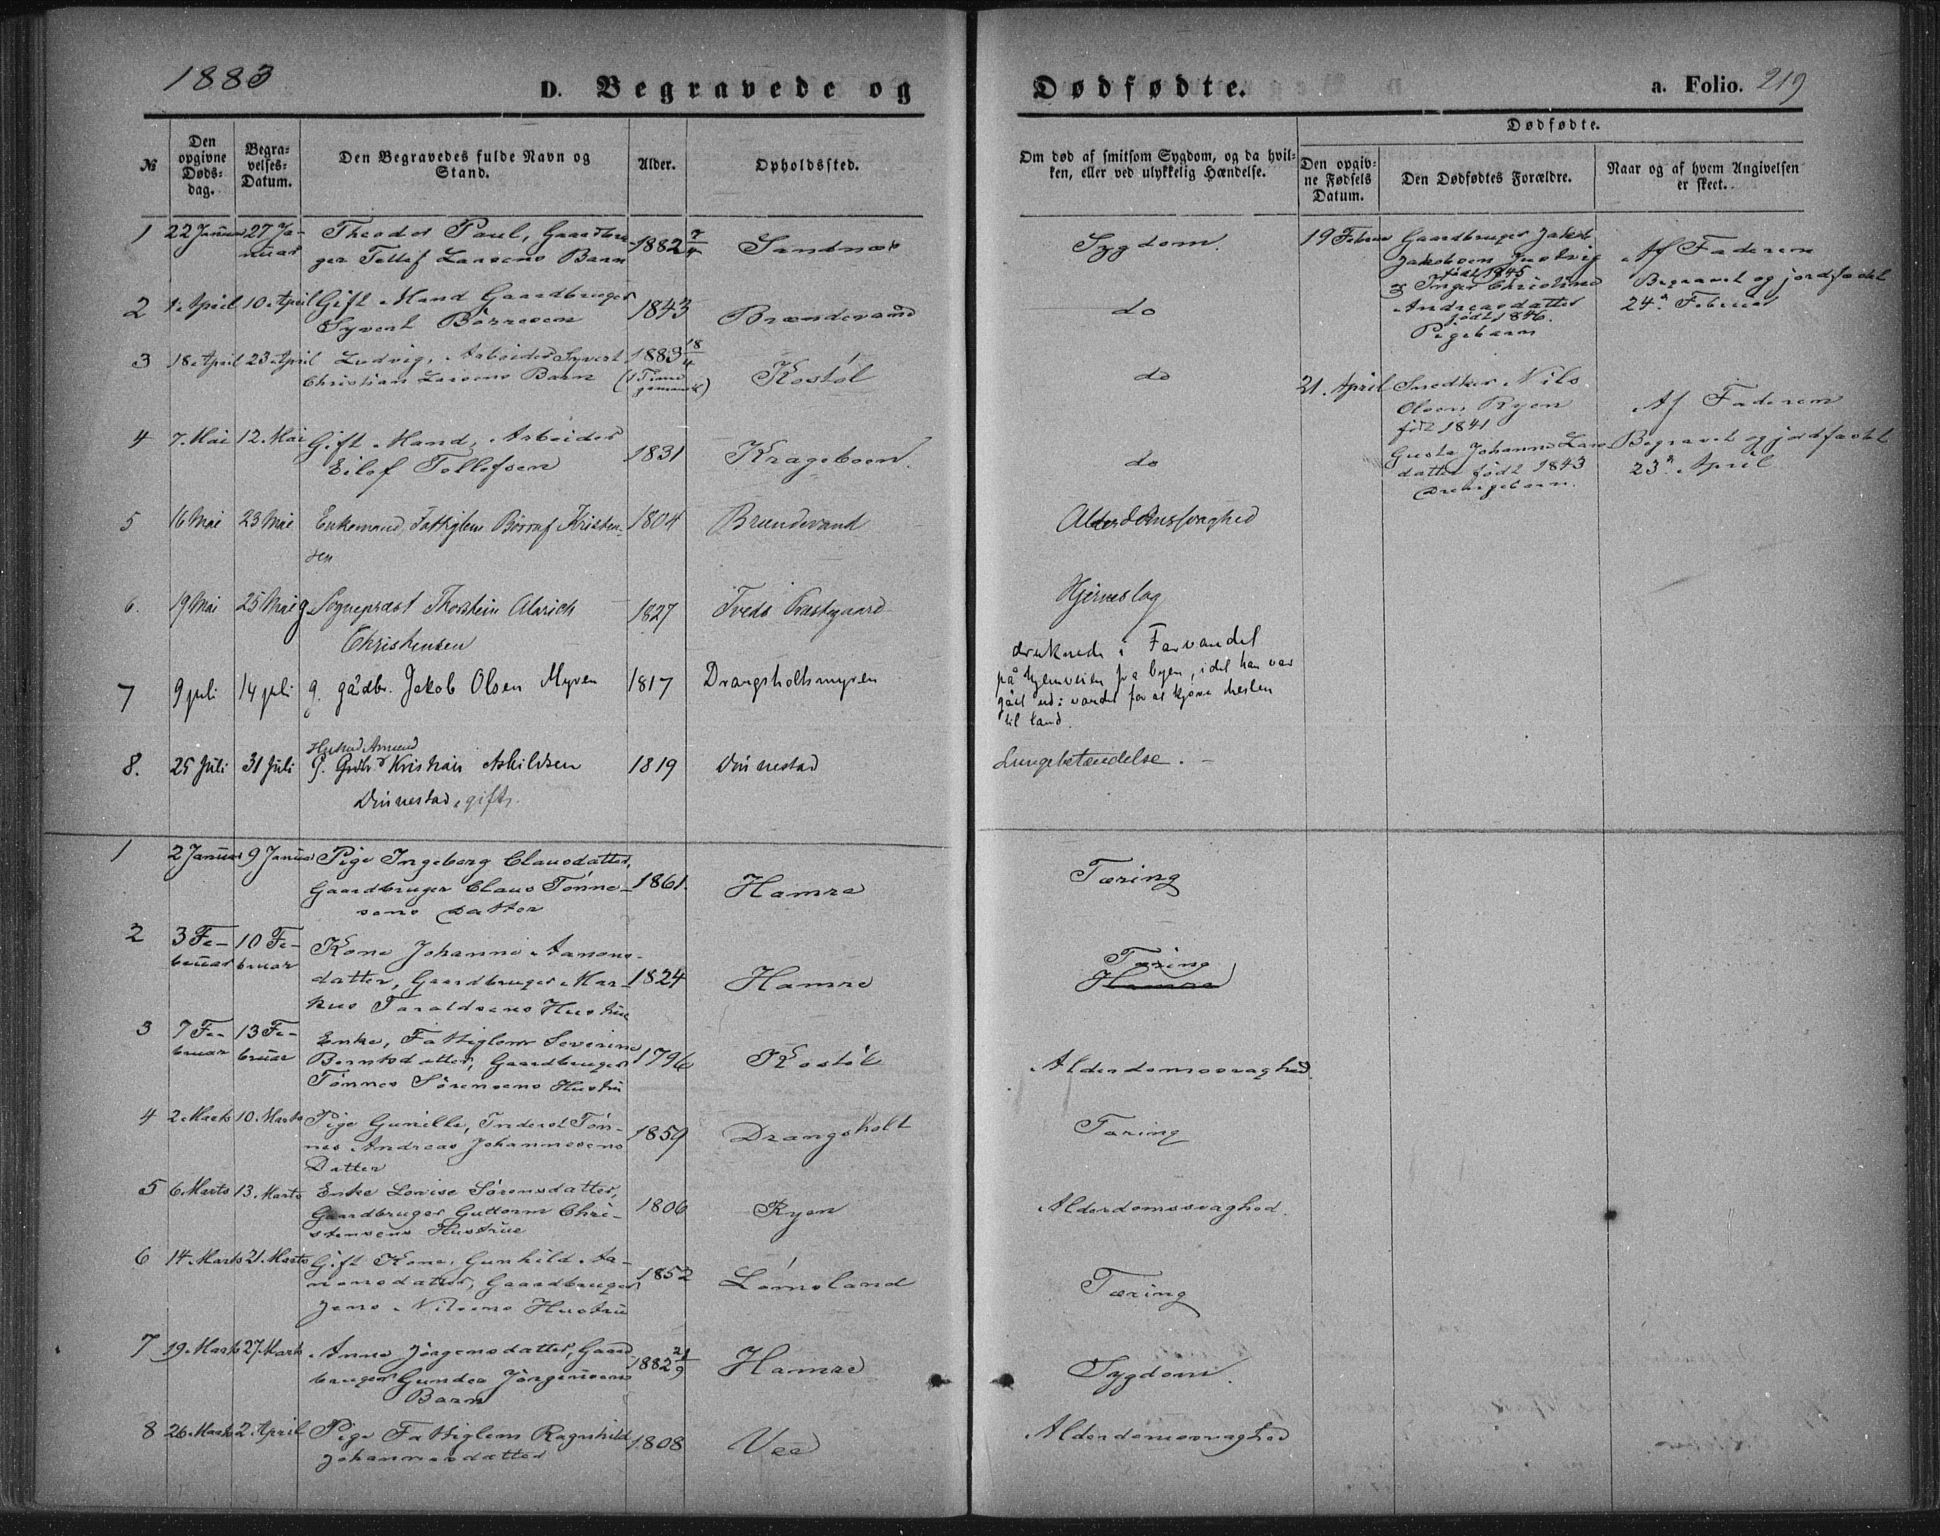 1883
D. Begravede og
Dødfødte.
a. Folio. 219
№
Den opgivne Døds-dag.
Begra-velses-Datum.
Den Begravedes fulde Navn og Stand.
Alder.
Opholdssted.
Om død af smitsom Sygdom, og da hvil-ken, eller ved ulykkelig Hændelse.
Dødfødte.
Den opgiv-ne Fødsels Datum.
Den Dødfødtes Forældre.
Naar og af hvem Angivelsen er skeet.
1 22 Januar 27 Ja- Theodor Paul, Gaardbru- 1882 7/4 Sandnæs Sygdom.
nuar ger Tellef Larsens Barn
2 1. April 10. April Gift Mand Gaardbruger 1843 Brændevand do
Syvert Börresen
3 18. April 23. April Ludvig, Arbeider Syvert 1883 18/4 Kostøl do
Christian Larsens Barn (1 Time gammelt)
4 7. Mai 12. Mai Gift Mand, Arbeider 1831 Krageboen. do
Eilef Tellefsen
5 16 Mai 23 Mai Enkemand, Fattiglem Börruf Kristen- 1804 Brændevand Alderdomssvaghed
sen
6. 19 Mai 25 Mai g. Sogneprest Thorstein Alarich 1827 Tveds Præstgaard Hjerneslag
Christensen
7 9 juli 14 juli g. gådbr. Jakob Olsen Myren 1817 Drangsholtsmyren druknede i Farvandet
på hjemveien fra byen, idet han var
gået ud i vandet for at kjøre hesten
til land.
Husmd
8. 25 Juli 31 Juli Kristian Askildsen 1819 Dønnestad Lungebetændelse.
Dønnestad, gift.
19 Februar Gaardbruger Jakob
Jakobsen
født 1845
& Inger Christine
Andreasdatter
født 1846.
Pigebarn
Af Faderen
Begravet og jordfæstet
24de Februar
21. April Snedker Nils
Olsen Ryen
født 1841
Gusta Johanne Lars-
datter født 1843
Drengebarn.
Af Faderen
Begravet og jordfæstet
23de April
1 2 Januar 9 Januar Pige Ingeborg Clausdatter, 1861. Hamre Tæring
Gaardbruger Claus Tønne-
sens Datter
2 3 Fe- 10 Fe- Kone Johanne Aanons- 1824 Hamre Tæring
bruar bruar datter, Gaardbruger Mar- Hamre
kus Taraldsens Hustru
3 7 Fe- 13 Fe- Enke, Fattiglem Severine 1796 Kostøl Alderdomssvaghed.
bruar bruar Berntsdatter, Gaardbruger
Tønnes Sørensens Hustru
4 2. Marts 10. Marts Pige Gunille, Inderst Tøn- 1859 Drangsholt Tæring
nes Andreas Johannesens
Datter
5 6. Marts 13. Marts Enke Lovise Sørensdatter, 1806 Ryen Alderdomssvaghed.
Gaardbruger Guttorm Chri-
stensens Hustrue
6 14. Marts 21. Marts Gift Kone, Gunhild Aa- 1852 Lømsland Tæring
nonsdatter, Gaardbruger
Jens Nilsens Hustru
7 19. Marts 27. Marts Anne Jørgensdatter, Gaard- 1882 21/9 Hamre Sygdom.
bruger Gunder Jørgensens
Barn
8 26. Marts 2. April Pige Fattiglem Ragnhild 1808 Vee Alderdomssvaghed
Johannesdatter